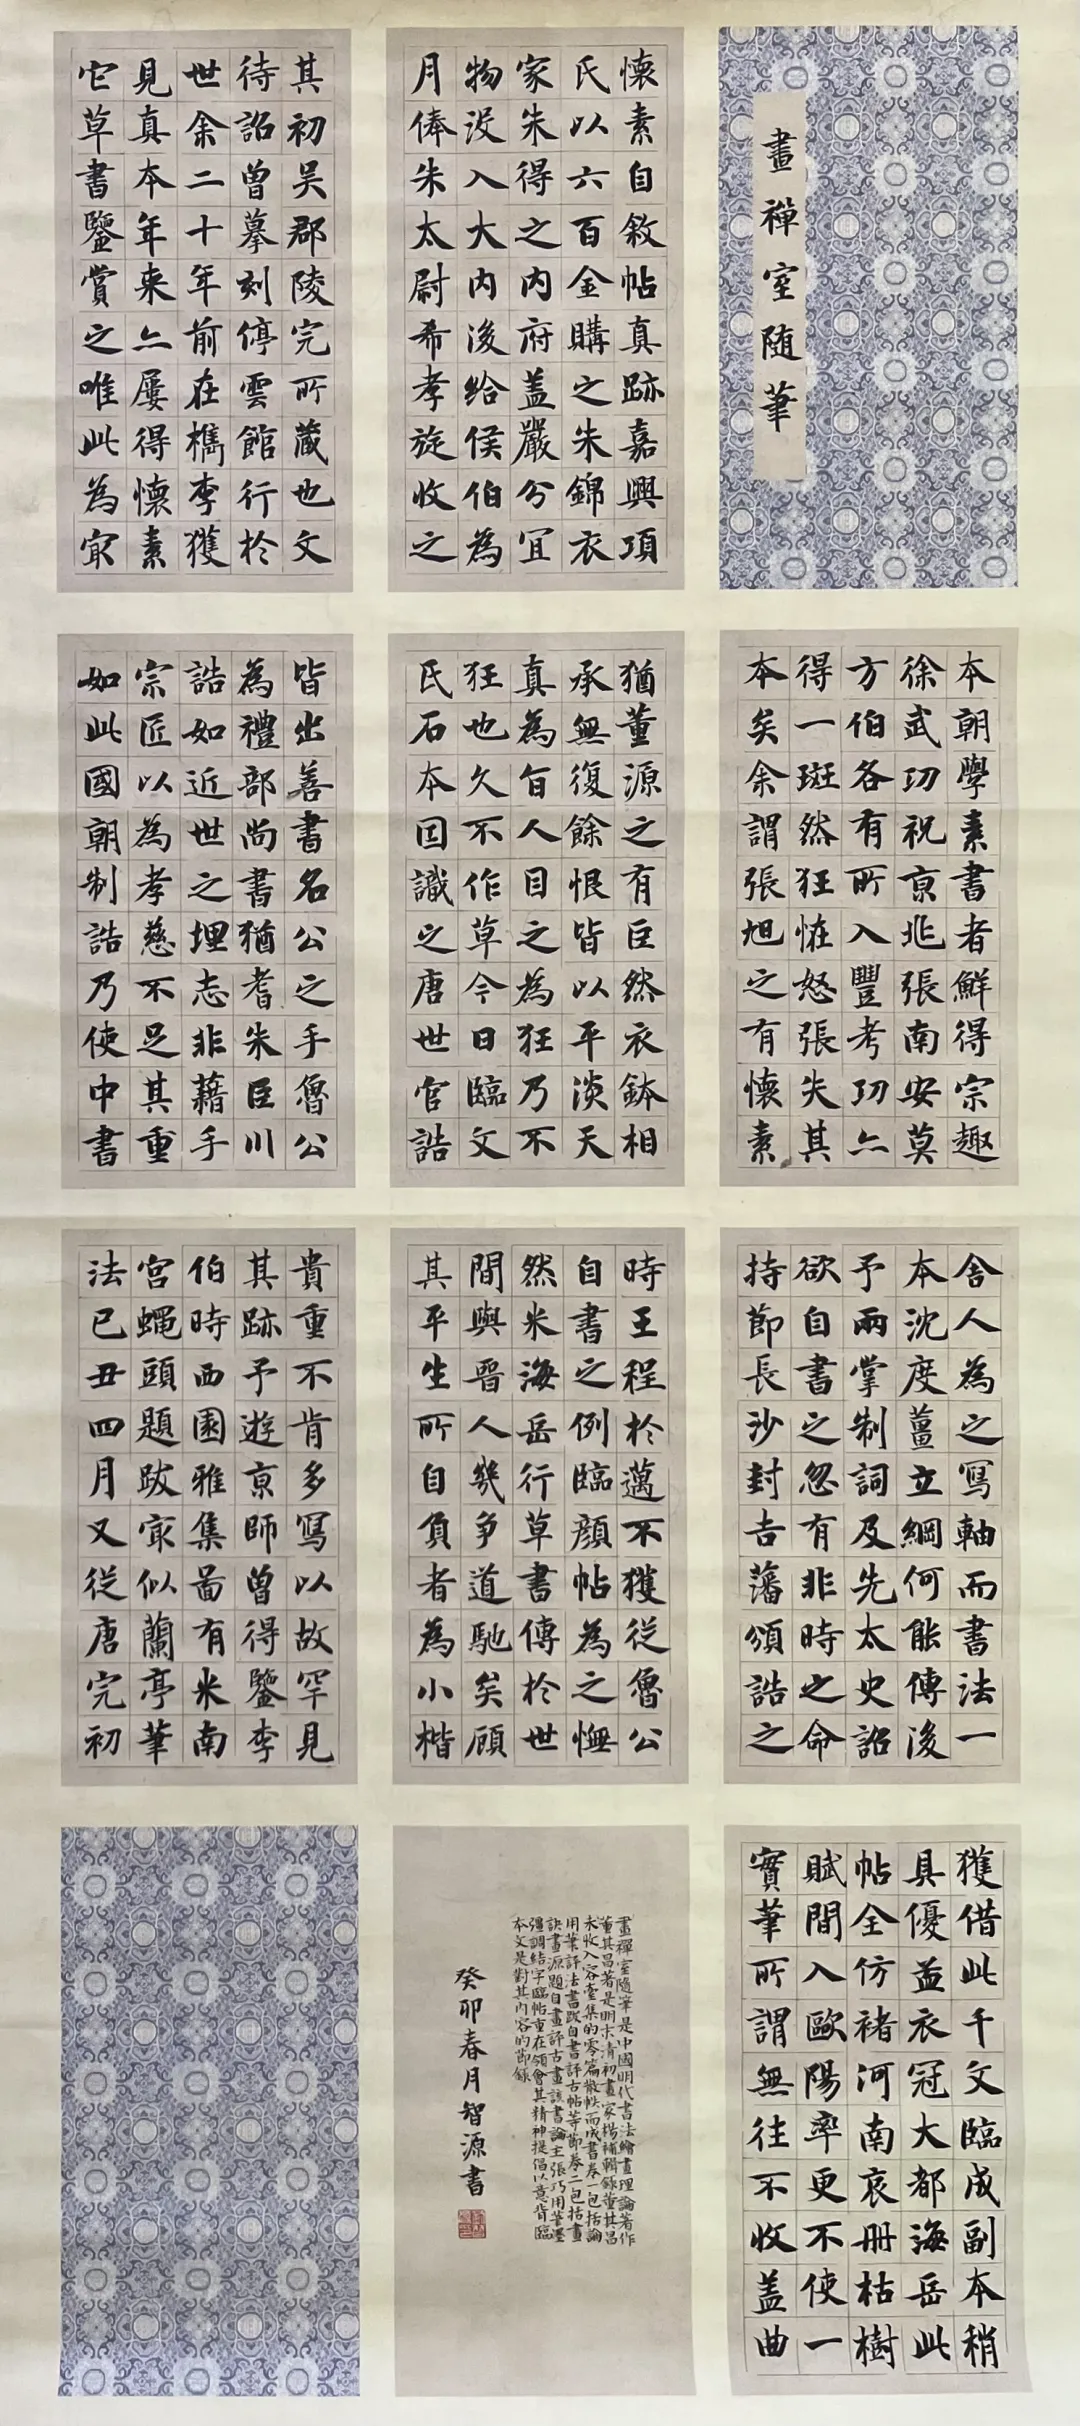 畫禪室随筆
懐素自敘帖真跡嘉興項
氏以六百金購之朱錦衣
家朱得之内府盖嚴分冝
物没入大内後給侯伯為
月俸朱太尉希孝旋收之
其初吴郡陵完所蔵也文
待詔曾摹刻停雲館行於
世余二十年前在檇李獲
見真本年来亠屢得懐素
它草書鑒賞之唯此為㝡
本朝學素書者鮮得宗趣
徐武功祝亰兆張南安莫
方伯各有所入豐考功亠
得一斑然狂怪怒張失其
本矣余謂張旭之有懐素
猶董源之有巨然衣鉢相
承無復餘恨皆以平淡天
真為旨人目之為狂乃不
狂也久不作草今日臨文
氏石本因識之唐世官誥
皆出善書名公之手魯公
為禮部尚書猶耆朱臣川
誥如近世之埋志非藉手
宗匠以為孝慈不足其重
如此國朝制誥乃使中書
舎人為之寫軸而書法一
本沈度薑立綱何能傳後
予兩掌制詞及先太史詔
欲自書之忽有非時之命
持節長沙封吉藩頒誥之
時王程於邁不獲従魯公
自書之例臨顔帖為之憮
然米海岳行草書傳於世
間與晉人幾争道馳矣顧
其平生所自負者為小楷
貴重不肯多寫以故罕見
其跡予遊亰師曾得鑒李
伯時西園雅集啚有米南
宮蝿頭題跋㝡似蘭亭筆
法已丑四月又従唐完初
獲借此千文臨成副本稍
具優益衣冠大都海岳此
帖全仿褚河南哀冊枯樹
賦間入歐陽率更不使一
實筆所謂無往不收盖曲
畫禪室隨筆是中國明代書法繪畫理論著作
董其昌著是明末清初畫家楊補輯錄董其昌
未收入容臺集的零篇散帙而成書卷一包括論
用筆評法書跋自書評古帖等節卷二包括畫
訣畫源題自畫評古畫該書論主張巧用筆墨
强調結字臨帖重在領會其精神提倡以意背臨
本文是對其内容的節録
癸卯春月智源書